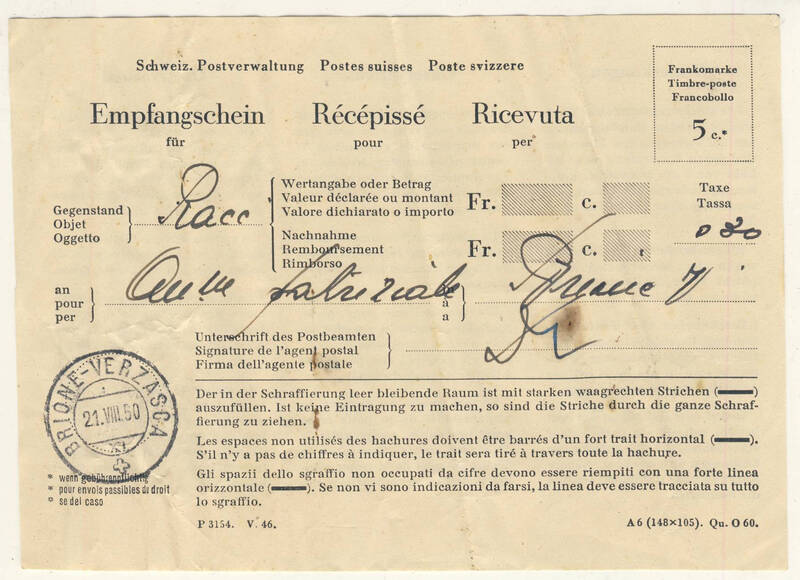 Schweiz. Postverwaltung Postes suisses Poste svizzere
Frankomarke
Timbre-poste
Francobollo
5 c.*
Empfangschein Récépissé Ricevuta
für pour per
Gegenstand
Objet
Oggetto
Racc
Wertangabe oder Betrag
Valeur déclarée ou montant
Valore dichiarato o importo
Fr. c.
Nachnahme
Remboursement
Rimborso
Fr. c.
Taxe
Tassa
0 30
an
pour
per
à
a
Unterschrift des Postbeamten
Signature de l'agent postal
Firma dell'agente postale
BRIONE-VERZASCA
21.VIII.50
XI
Der in der Schraffierung leer bleibende Raum ist mit starken waagrechten Strichen (▬)
auszufüllen. Ist keine Eintragung zu machen, so sind die Striche durch die ganze Schraf-
fierung zu ziehen.
Les espaces non utilisés des hachures doivent être barrés d'un fort trait horizontal (▬).
S'il n'y a pas de chiffres à indiquer, le trait sera tiré à travers toute la hachure.
Gli spazii dello sgraffio non occupati da cifre devono essere riempiti con una forte linea
orizzontale (▬). Se non vi sono indicazioni da farsi, la linea deve essere tracciata su tutto
lo sgraffio.
* wenn gebührenpflichtig
* pour envois passibles du droit
* se del caso
P 3154. V. 46.
A 6 (148×105). Qu. O 60.